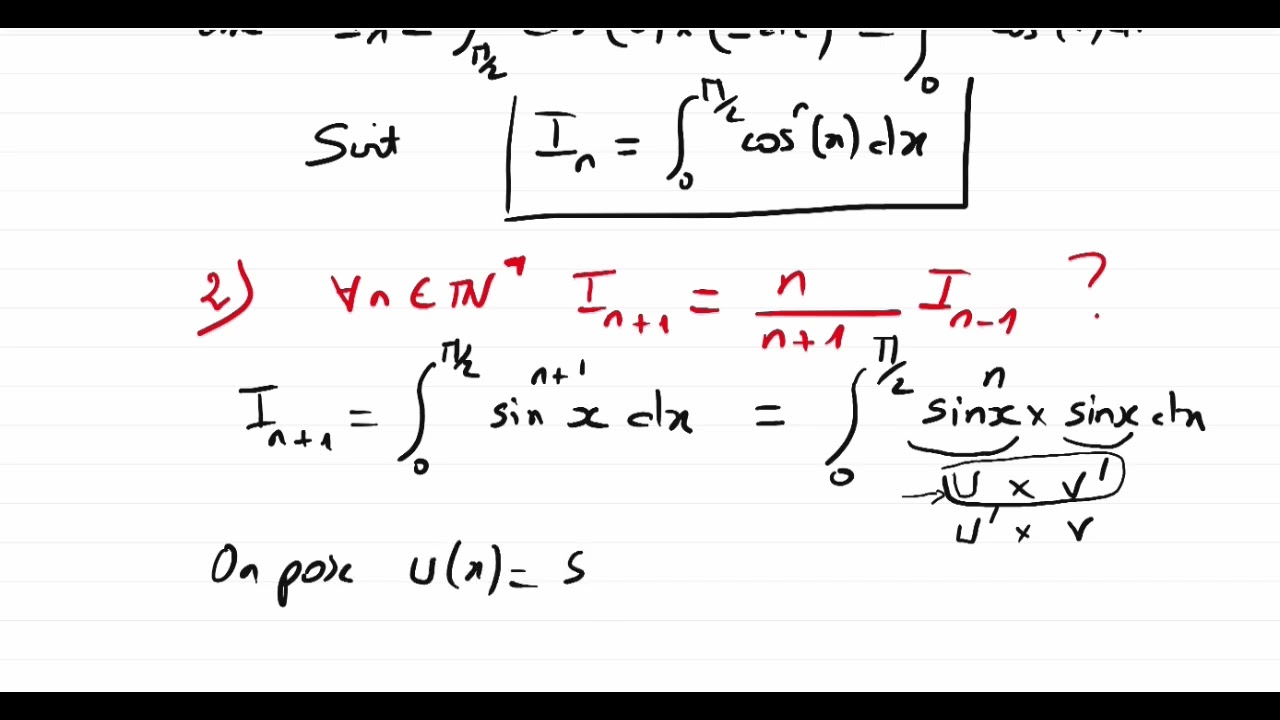 Soit I_n = ∫_0^{π/2} cos^n(x) dx
2) ∀n ∈ ℕ* I_{n+1} = n/(n+1) I_{n-1} ?
I_{n+1} = ∫_0^{π/2} sin^{n+1} x dx = ∫_0^{π/2} sin^n x × sin x dx
U × V'
U' × V
On pose U(x) = s